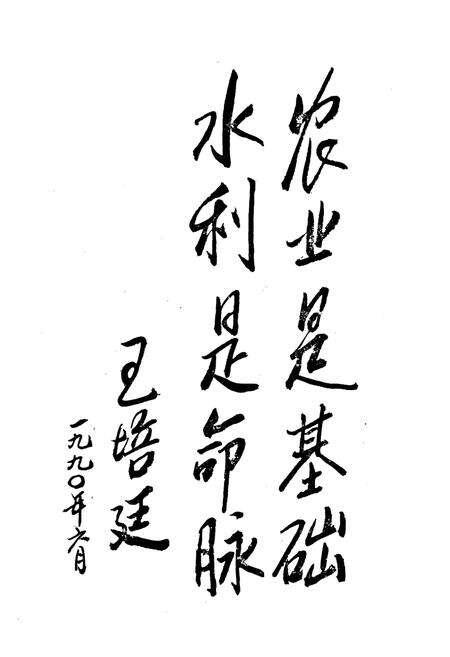 农业是基础
水利是命脉
王培廷
一九九〇年六月